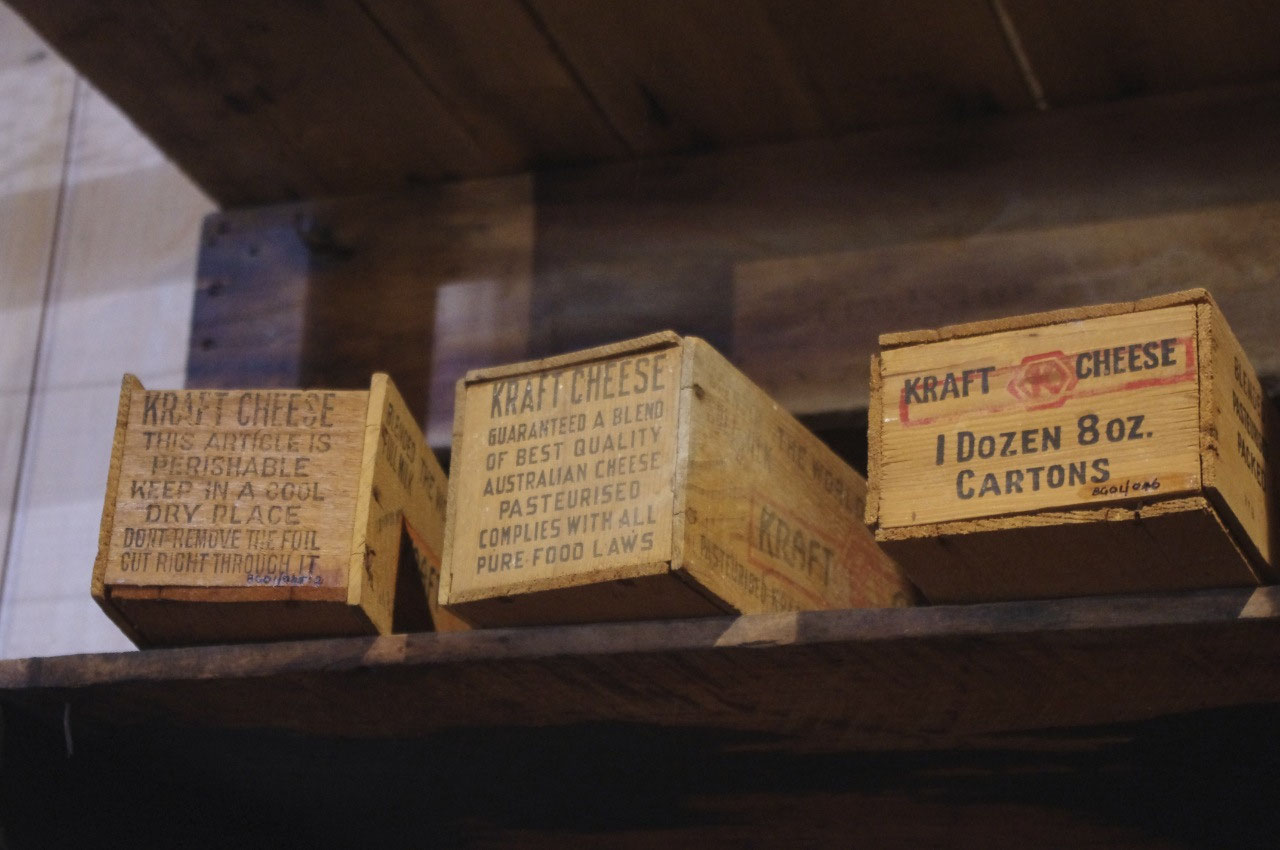 KRAFT CHEESE
THIS ARTICLE IS
PERISHABLE
KEEP IN A COOL
DRY PLACE
DONT REMOVE THE FOIL
CUT RIGHT THROUGH IT
KRAFT CHEESE
GUARANTEED A BLEND
OF BEST QUALITY
AUSTRALIAN CHEESE
PASTEURISED
COMPLIES WITH ALL
PURE FOOD LAWS
THE WORLD
KRAFT
KRAFT K CHEESE
1 DOZEN 8 OZ.
CARTONS